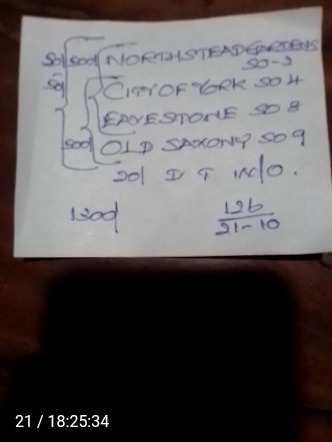 50/ 500 NORTHSTEAD GARDENS
50-2
50/ CITY OF YORK 50 4
EAYESTONE 50 8
500 OLD SAXONY 50 9
20/ D T IN/O.
1300/ 126
21-10
21 / 18:25:34